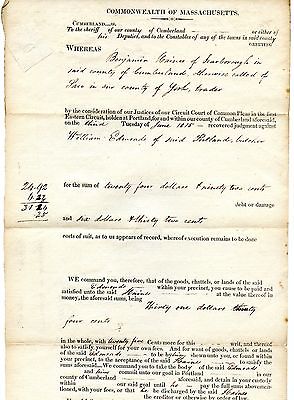 COMMONWEALTH OF MASSACHUSETTS.
CUMBERLAND, ss.
To the sheriff of our county of Cumberland or either of
his Deputies, and to the Constables of any of the towns in said county
GREETING:
WHEREAS Benjamin Haines of Scarborough in
said county of Cumberland, otherwise called of
in our county of York, trader
by the consideration of our Justices of our Circuit Court of Common Pleas in the first
Eastern Circuit, holden at Portland, for and within our county of Cumberland aforesaid,
on the third Tuesday of June 1815 recovered judgment against
William Edmonds of said Portland,
24-92
6.32
31-24
25
for the sum of twenty four dollars & ninety two cents
debt or damage
and six dollars & thirty two cents
costs of suit, as to us appears of record, whereof execution remains to be done
WE command you, therefore, that of the goods, chattels, or lands of the said
Edmonds within your precinct, you cause to be paid and
satisfied unto the said Haines at the value thereof in
money, the aforesaid sums, being
thirty one dollars twenty
four cents
in the whole, with twenty five Cents more for this writ, and thereof
also to satisfy yourself for your own fees. And for want of goods, chattels, or lands
of the said Edmonds to be by him shewn unto you, or found within
your precinct, to the acceptance of the said Haines to satisfy the sums
aforesaid, We command you to take the body of the said Edmonds
and him commit unto our goal in Portland in our
county of Cumberland aforesaid, and detain in your custody
within our said goal until he pay the full sums above-mentioned,
with your fees, or that he be discharged by the said Haines
the creditor or otherwise by order of law.